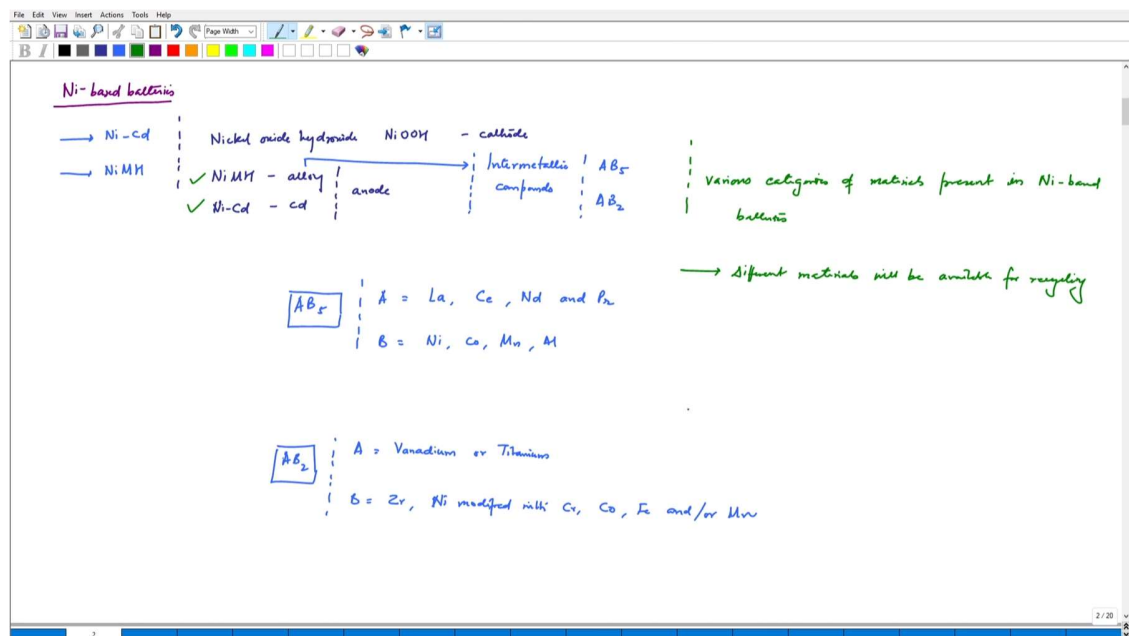 File Edit View Insert Actions Tools Help
Page Width
B I
Ni-based batteries
→ Ni-Cd
→ NiMH
Nickel oxide hydroxide NiOOH - cathode
✓ NiMH - alloy
✓ Ni-Cd - cd
anode
Intermetallic
compounds
AB5
AB2
Various categories of materials present in Ni-based
batteries
→ Different materials will be available for recycling
AB5
A = La, Ce, Nd and Pr
B = Ni, Co, Mn, Al
AB2
A = Vanadium or Titanium
B = Zr, Ni modified with Cr, Co, Fe and/or Mn
2 / 20
2